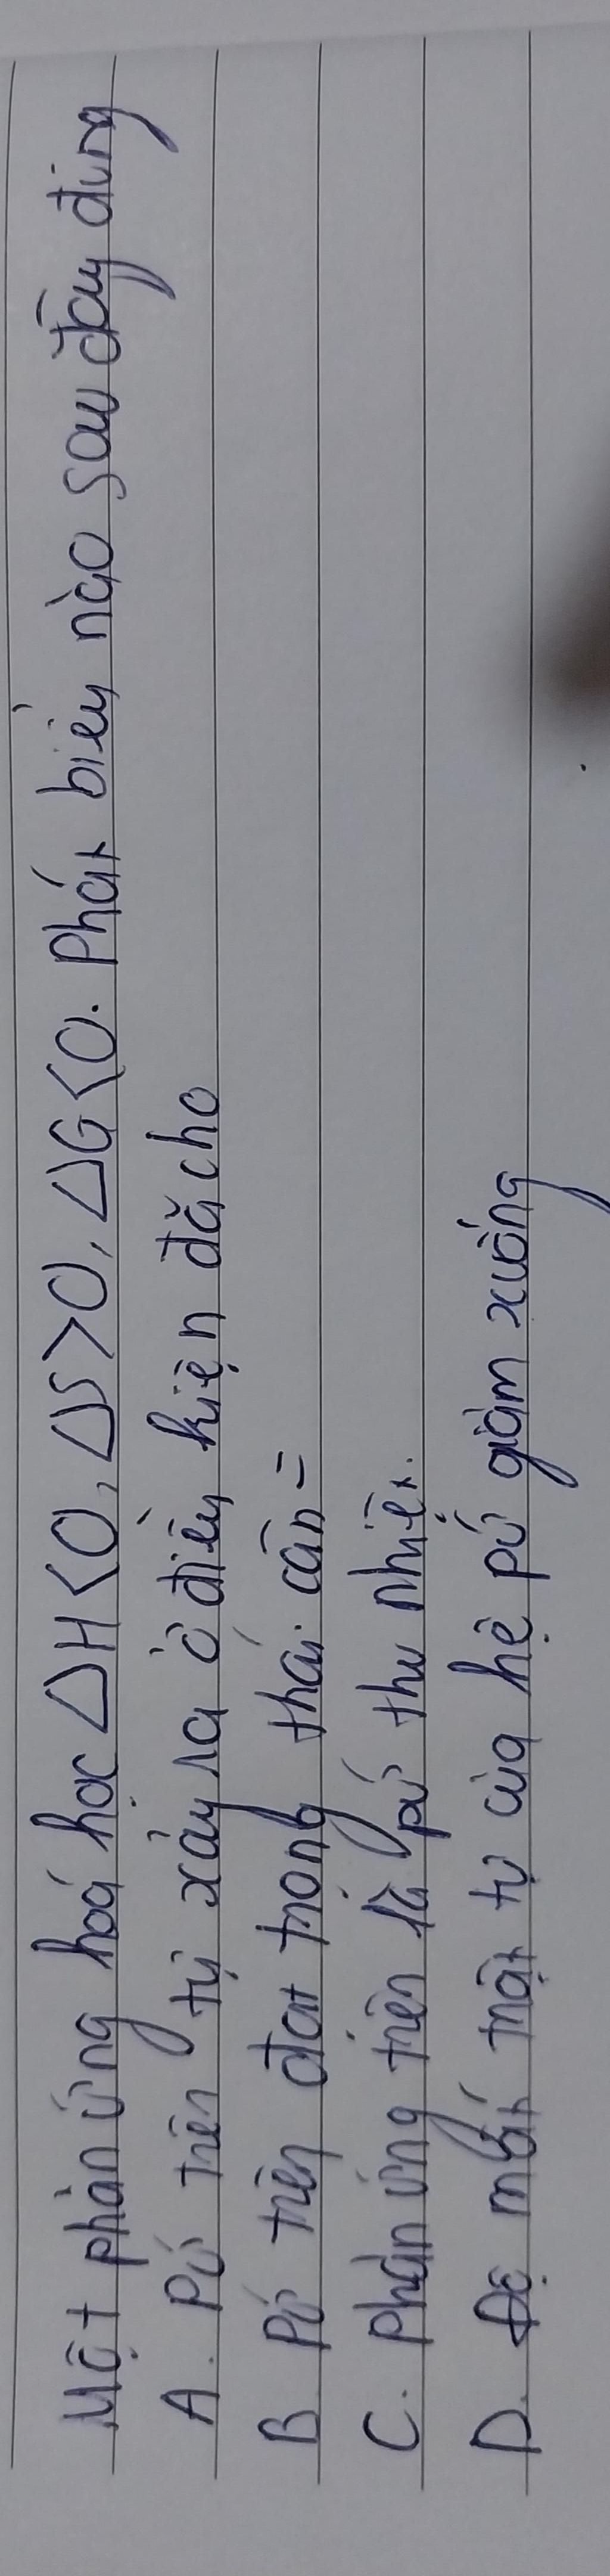 Một phản ứng hoá học ΔH<0, ΔS>0, ΔG<0. Phát biểu nào sau đây đúng
A. Pứ trên tự xảy ra ở điều kiện đã cho
B. Pứ trên đạt trong thái cân =
C. Phản ứng trên là pứ thu nhiệt.
D. Độ mất trật tự của hệ pứ giảm xuống